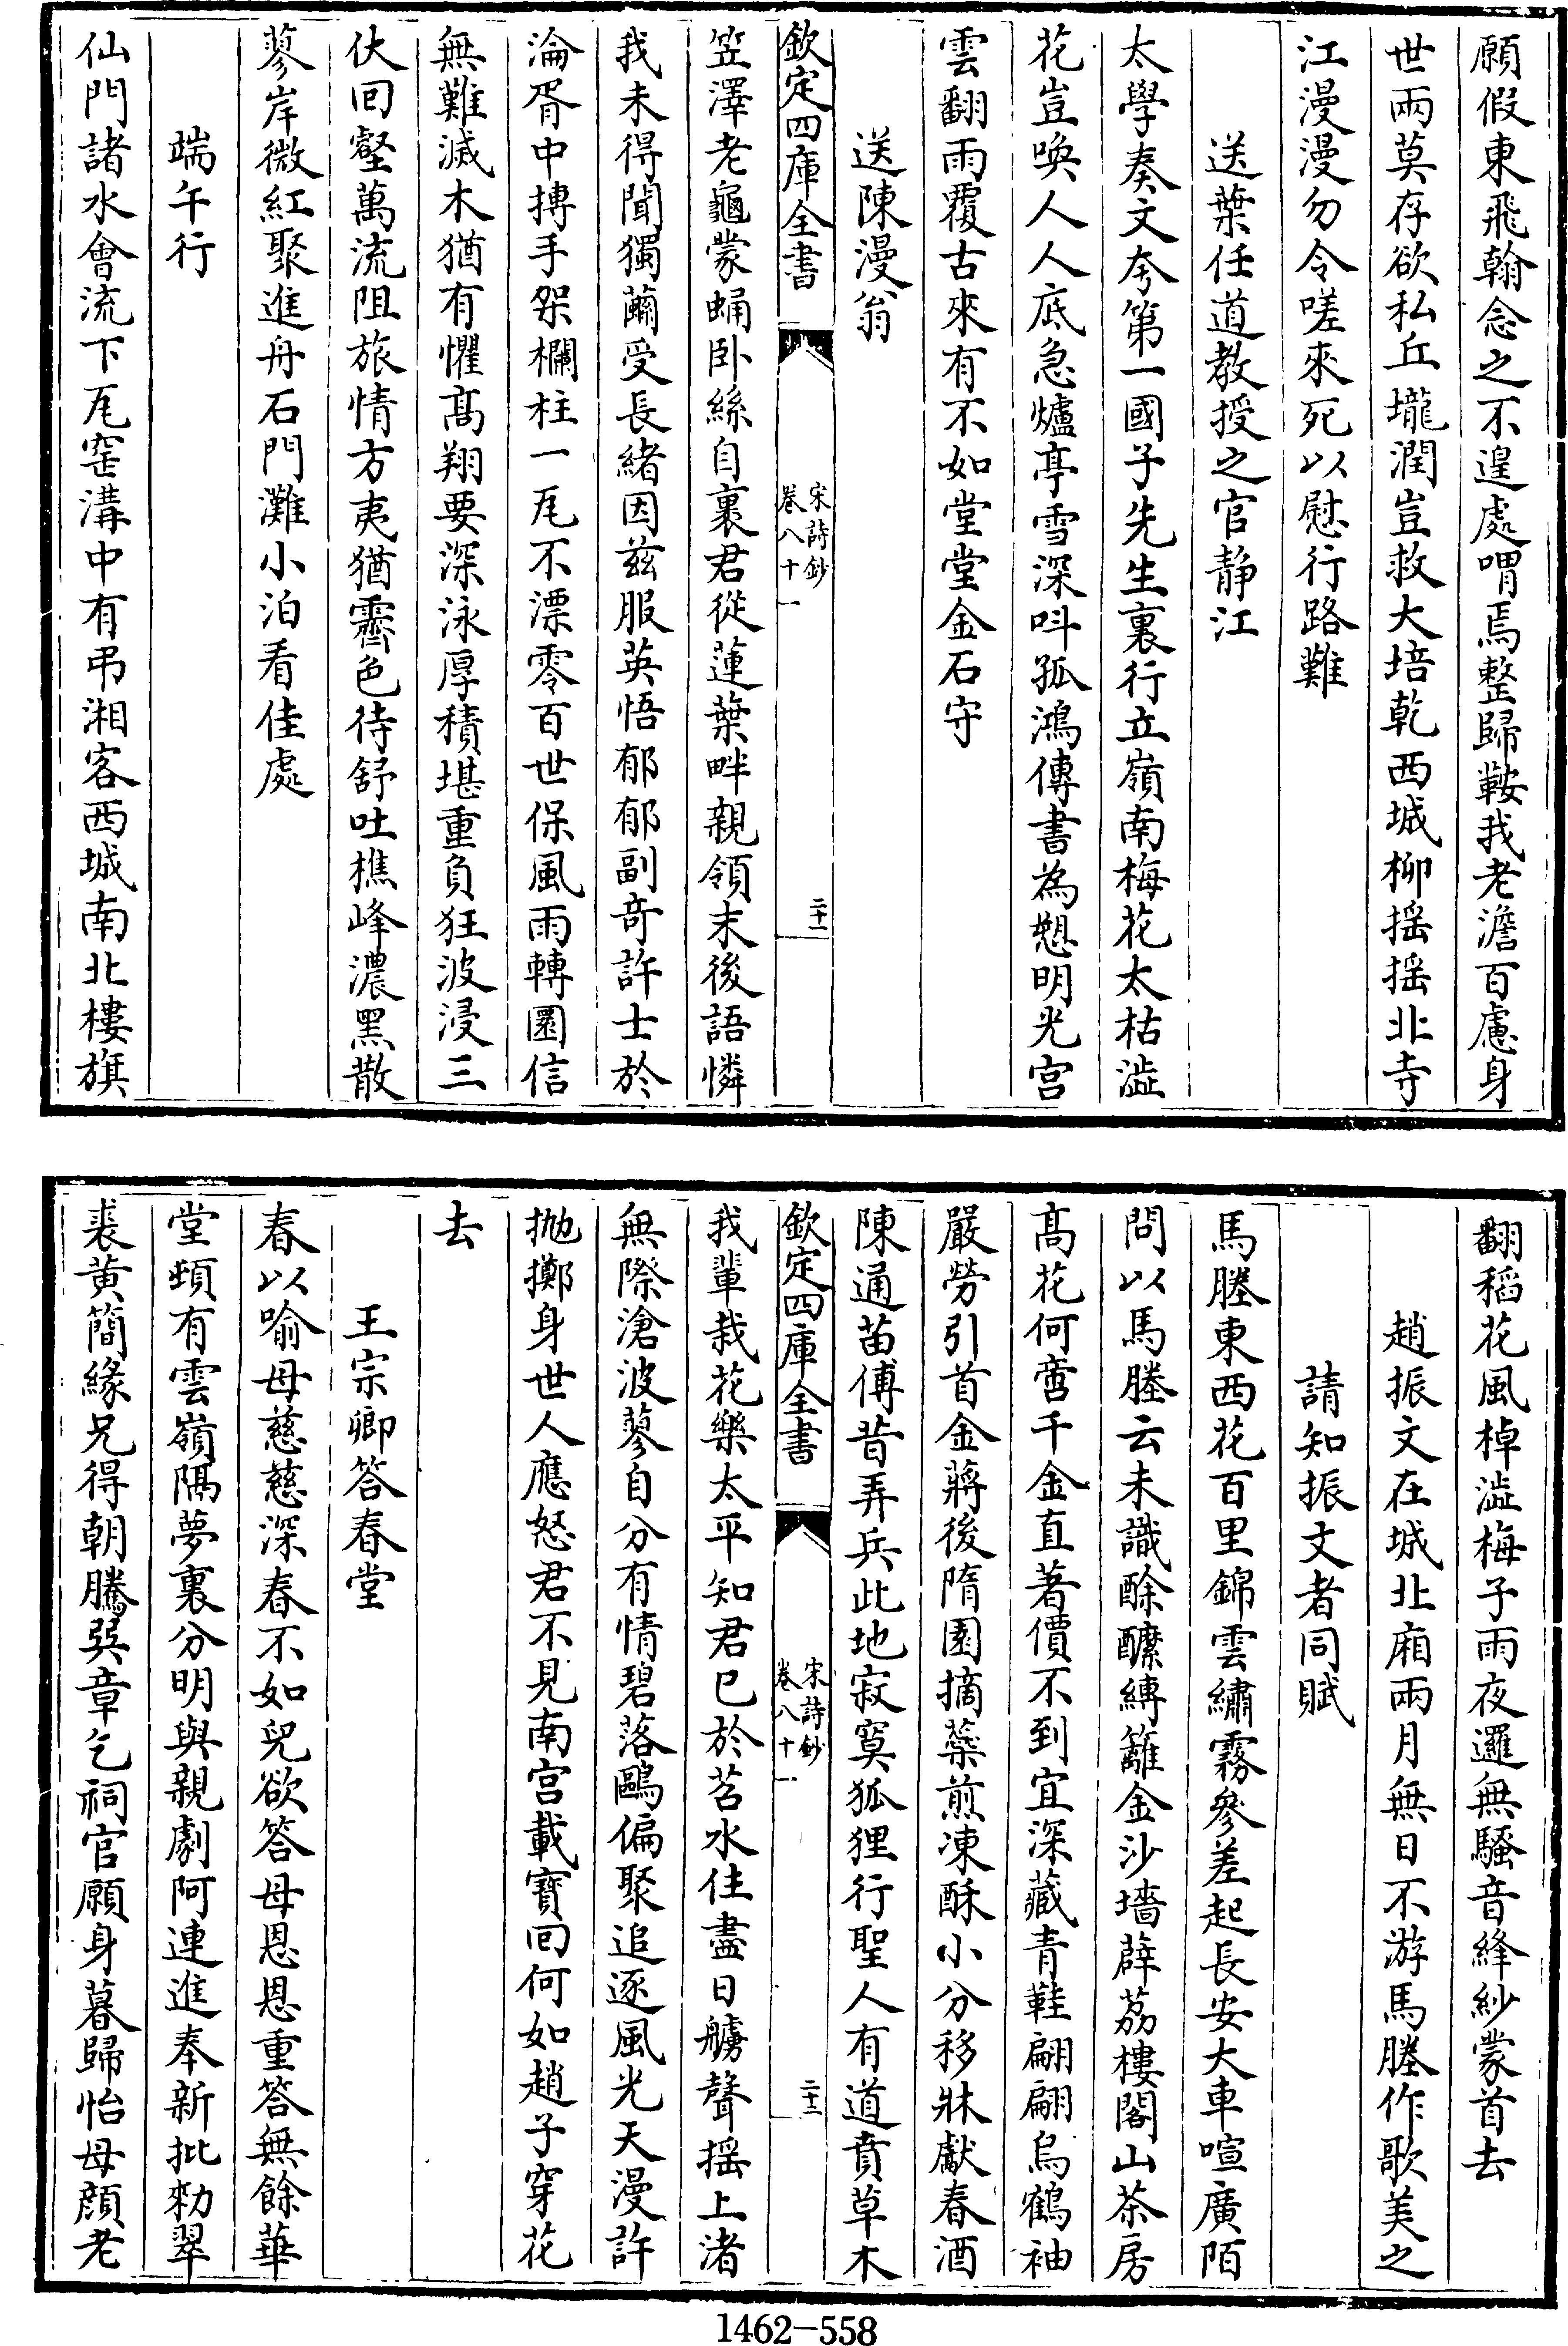 願假東飛翰念之不遑處喟焉整歸鞍我老澹百慮身
世兩莫存欲私丘壠潤豈救大培乾西城柳揺揺北寺
江漫漫勿令嗟來死以慰行路難
送葉任道教授之官靜江
太學奏文夸第一國子先生裏行立嶺南梅花太枯澁
花豈喚人人底急爐亭雪深呌孤鴻傳書為懇明光宫
雲翻雨覆古來有不如堂堂金石守
送陳漫翁
欽定四庫全書
宋詩鈔
卷八十一
二十一
笠澤老龜蒙蛹卧絲自裹君從蓮葉畔親領末後語憐
我未得聞獨繭受長緒因兹服英悟郁郁副奇許士於
淪胥中摶手架欄柱一瓦不漂零百世保風雨轉圜信
無難滅木猶有懼髙翔要深泳厚積堪重負狂波浸三
伏回壑萬流阻旅情方夷猶霽色待舒吐樵峰濃黑散
蓼岸微紅聚進舟石門灘小泊看佳處
端午行
仙門諸水會流下瓦窑溝中有弔湘客西城南北樓旗
翻稻花風棹澁梅子雨夜邏無騷音絳紗蒙首去
趙振文在城北廂兩月無日不游馬塍作歌美之
請知振文者同賦
馬塍東西花百里錦雲繡霧參差起長安大車喧廣陌
問以馬塍云未識酴醿縛籬金沙墻薜荔樓閣山茶房
髙花何啻千金直著價不到宜深藏青鞋翩翩烏鶴袖
嚴勞引首金蔣後隋園摘蘂煎凍酥小分移牀獻春酒
陳通苗傅昔弄兵此地寂寞狐狸行聖人有道賁草木
欽定四庫全書
宋詩鈔
卷八十一
二十二
我輩栽花樂太平知君已於苕水住盡日艣聲揺上渚
無際滄波蓼自分有情碧落鷗偏聚追逐風光天漫許
抛擲身世人應怒君不見南宫載寳回何如趙子穿花
去
王宗卿答春堂
春以喻母慈慈深春不如兒欲答母恩恩重答無餘華
堂頫有雲嶺隅夢裏分明與親劇阿連進奉新批勑翠
裘黄簡緣兄得朝騰巽章乞祠官願身暮歸怡母顔老
1462-558